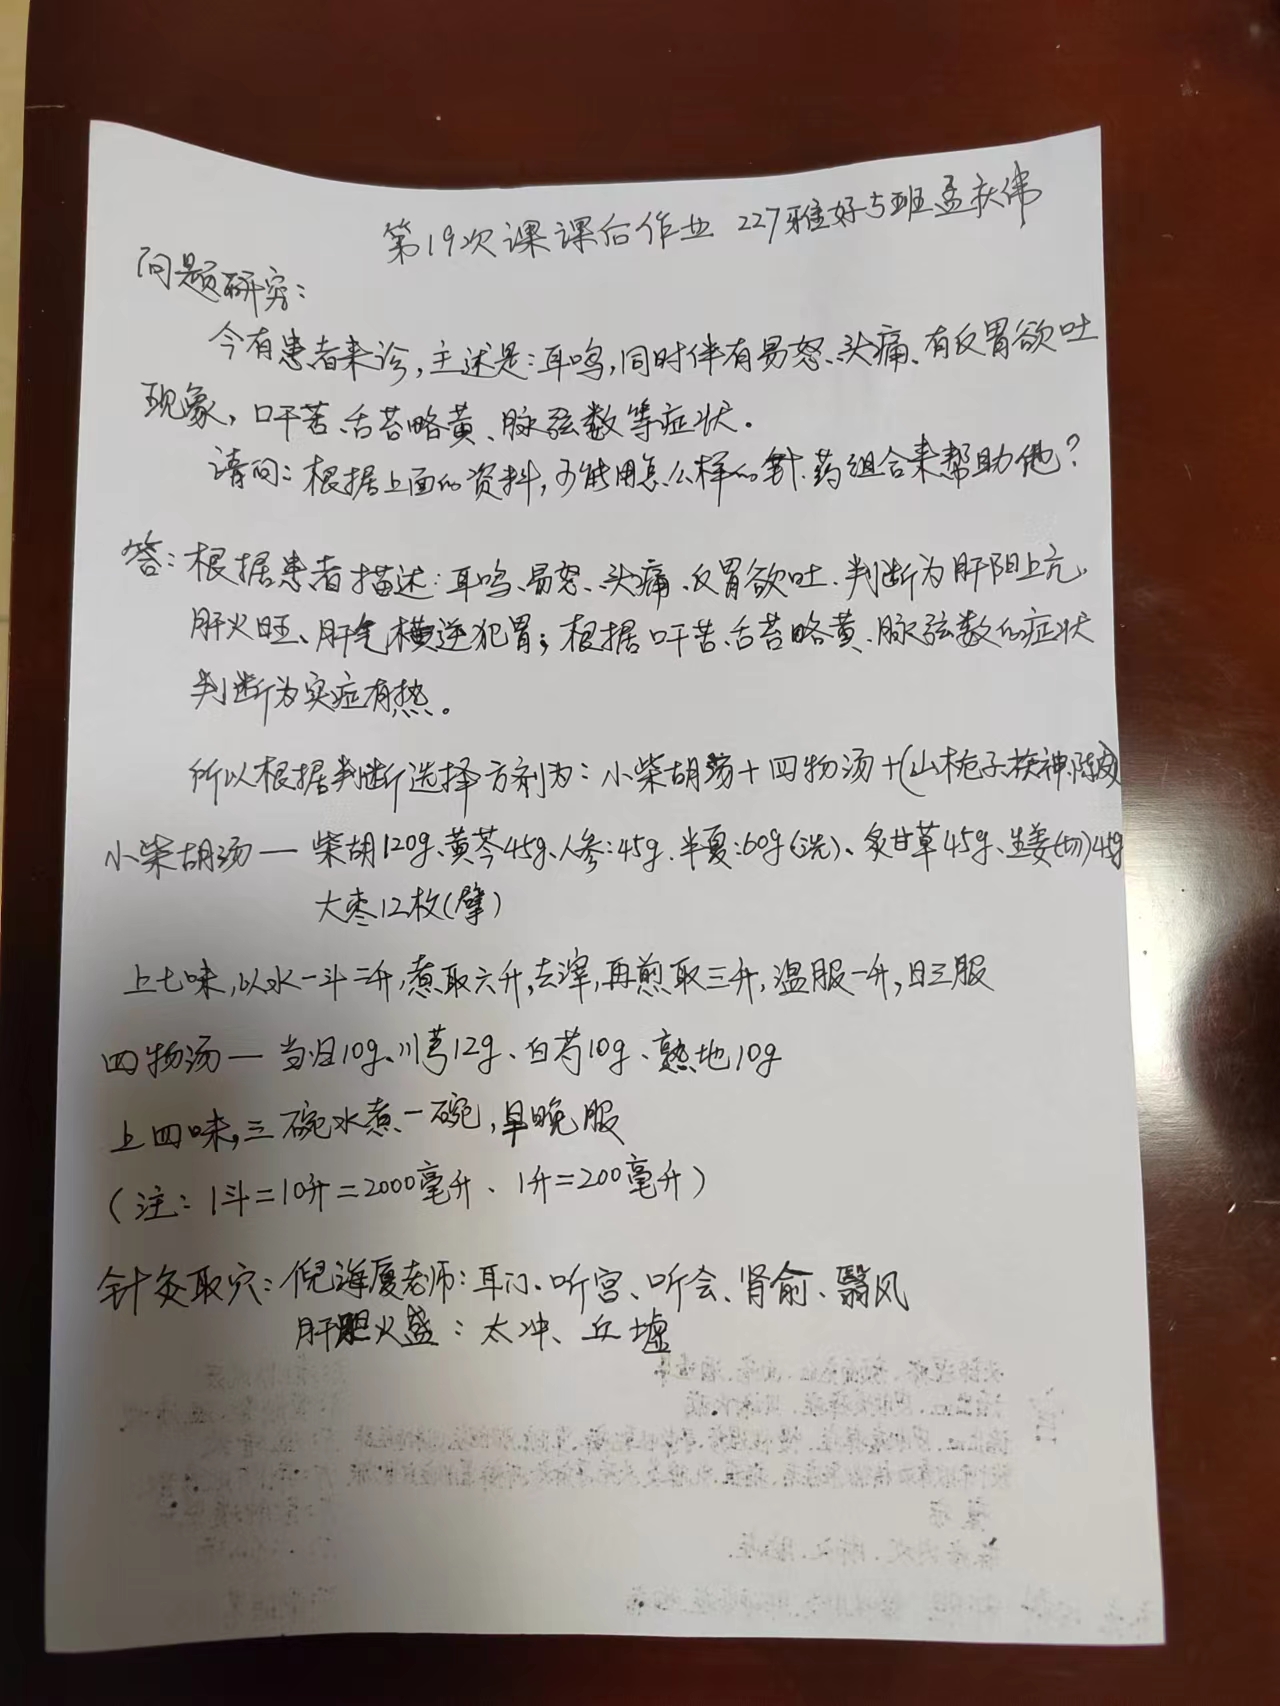 第19次课课后作业 227雅好5班孟庆伟
问题研究:
今有患者来诊,主述是:耳鸣,同时伴有易怒、头痛、有反胃欲吐
现象,口干苦、舌苔略黄、脉弦数等症状。
请问:根据上面的资料,可能用怎么样的针.药组合来帮助他?
答:根据患者描述:耳鸣、易怒、头痛、反胃欲吐.判断为肝阳上亢、
肝火旺、肝气横逆犯胃;根据口干苦、舌苔略黄、脉弦数的症状
判断为实症有热。
所以根据判断选择方剂为:小柴胡汤+四物汤+(山栀子、茯神、陈皮)
小柴胡汤— 柴胡120g、黄芩45g、人参:45g、半夏:60g(洗)、炙甘草45g、生姜(切)45g
大枣12枚(擘)
上七味,以水一斗二升,煮取六升,去滓,再煎取三升,温服一升,日三服
四物汤— 当归10g、川芎12g、白芍10g、熟地10g
上四味,三碗水煮一碗,早晚服
(注:1斗=10升=2000毫升、1升=200毫升)
针灸取穴:倪海厦老师:耳门、听宫、听会、肾俞、翳风
肝胆火盛:太冲、丘墟